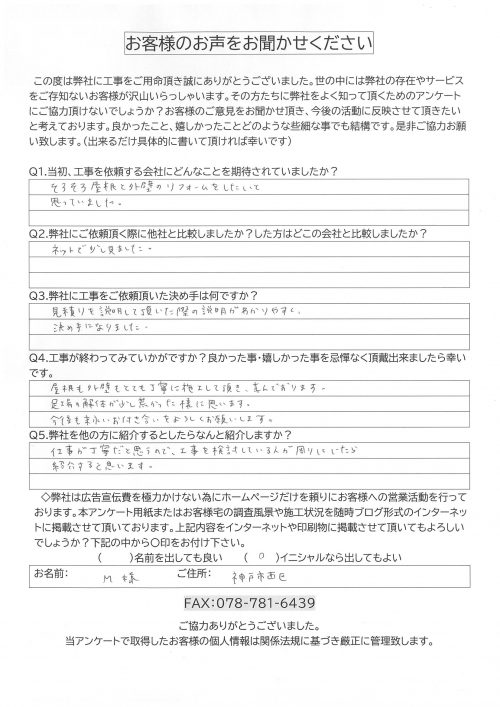 お客様のお声をお聞かせください
この度は弊社に工事をご用命頂き誠にありがとうございました。世の中には弊社の存在やサービス
をご存知ないお客様が沢山いらっしゃいます。その方たちに弊社をよく知って頂くためのアンケート
にご協力頂けないでしょうか?お客様のご意見をお聞かせ頂き、今後の活動に反映させて頂きたい
と考えております。良かったこと、嬉しかったことどのような些細な事でも結構です。是非ご協力お願
い致します。(出来るだけ具体的に書いて頂ければ幸いです)
Q1.当初、工事を依頼する会社にどんなことを期待されていましたか?
そろそろ屋根と外壁のリフォームをしたいと
思っていました。
Q2.弊社にご依頼頂く際に他社と比較しましたか?した方はどこの会社と比較しましたか?
ネットで少し見ました。
Q3.弊社に工事をご依頼頂いた決め手は何ですか?
見積りを説明して頂いた際の説明がわかりやすく、
決め手になりました。
Q4.工事が終わってみていかがですか?良かった事・嬉しかった事を忌憚なく頂戴出来ましたら幸い
です。
屋根も外壁もとても丁寧に施工して頂き、喜んでおります。
足場の解体が少し荒かった様に思います。
今後も末永いお付き合いをよろしくお願いします。
Q5.弊社を他の方に紹介するとしたらなんと紹介しますか?
仕事が丁寧だと思うので、工事を検討している人が周りにいたら
紹介すると思います。
◇弊社は広告宣伝費を極力かけない為にホームページだけを頼りにお客様への営業活動を行って
おります。本アンケート用紙またはお客様宅の調査風景や施工状況を随時ブログ形式のインターネッ
トに掲載させて頂いております。上記内容をインターネットや印刷物に掲載させて頂いてもよろしい
でしょうか?下記の中から〇印をお付け下さい。
( )名前を出しても良い ( 〇 )イニシャルなら出してもよい
お名前: M 様 ご住所: 神戸市西区
FAX:078-781-6439
ご協力ありがとうございました。
当アンケートで取得したお客様の個人情報は関係法規に基づき厳正に管理致します。